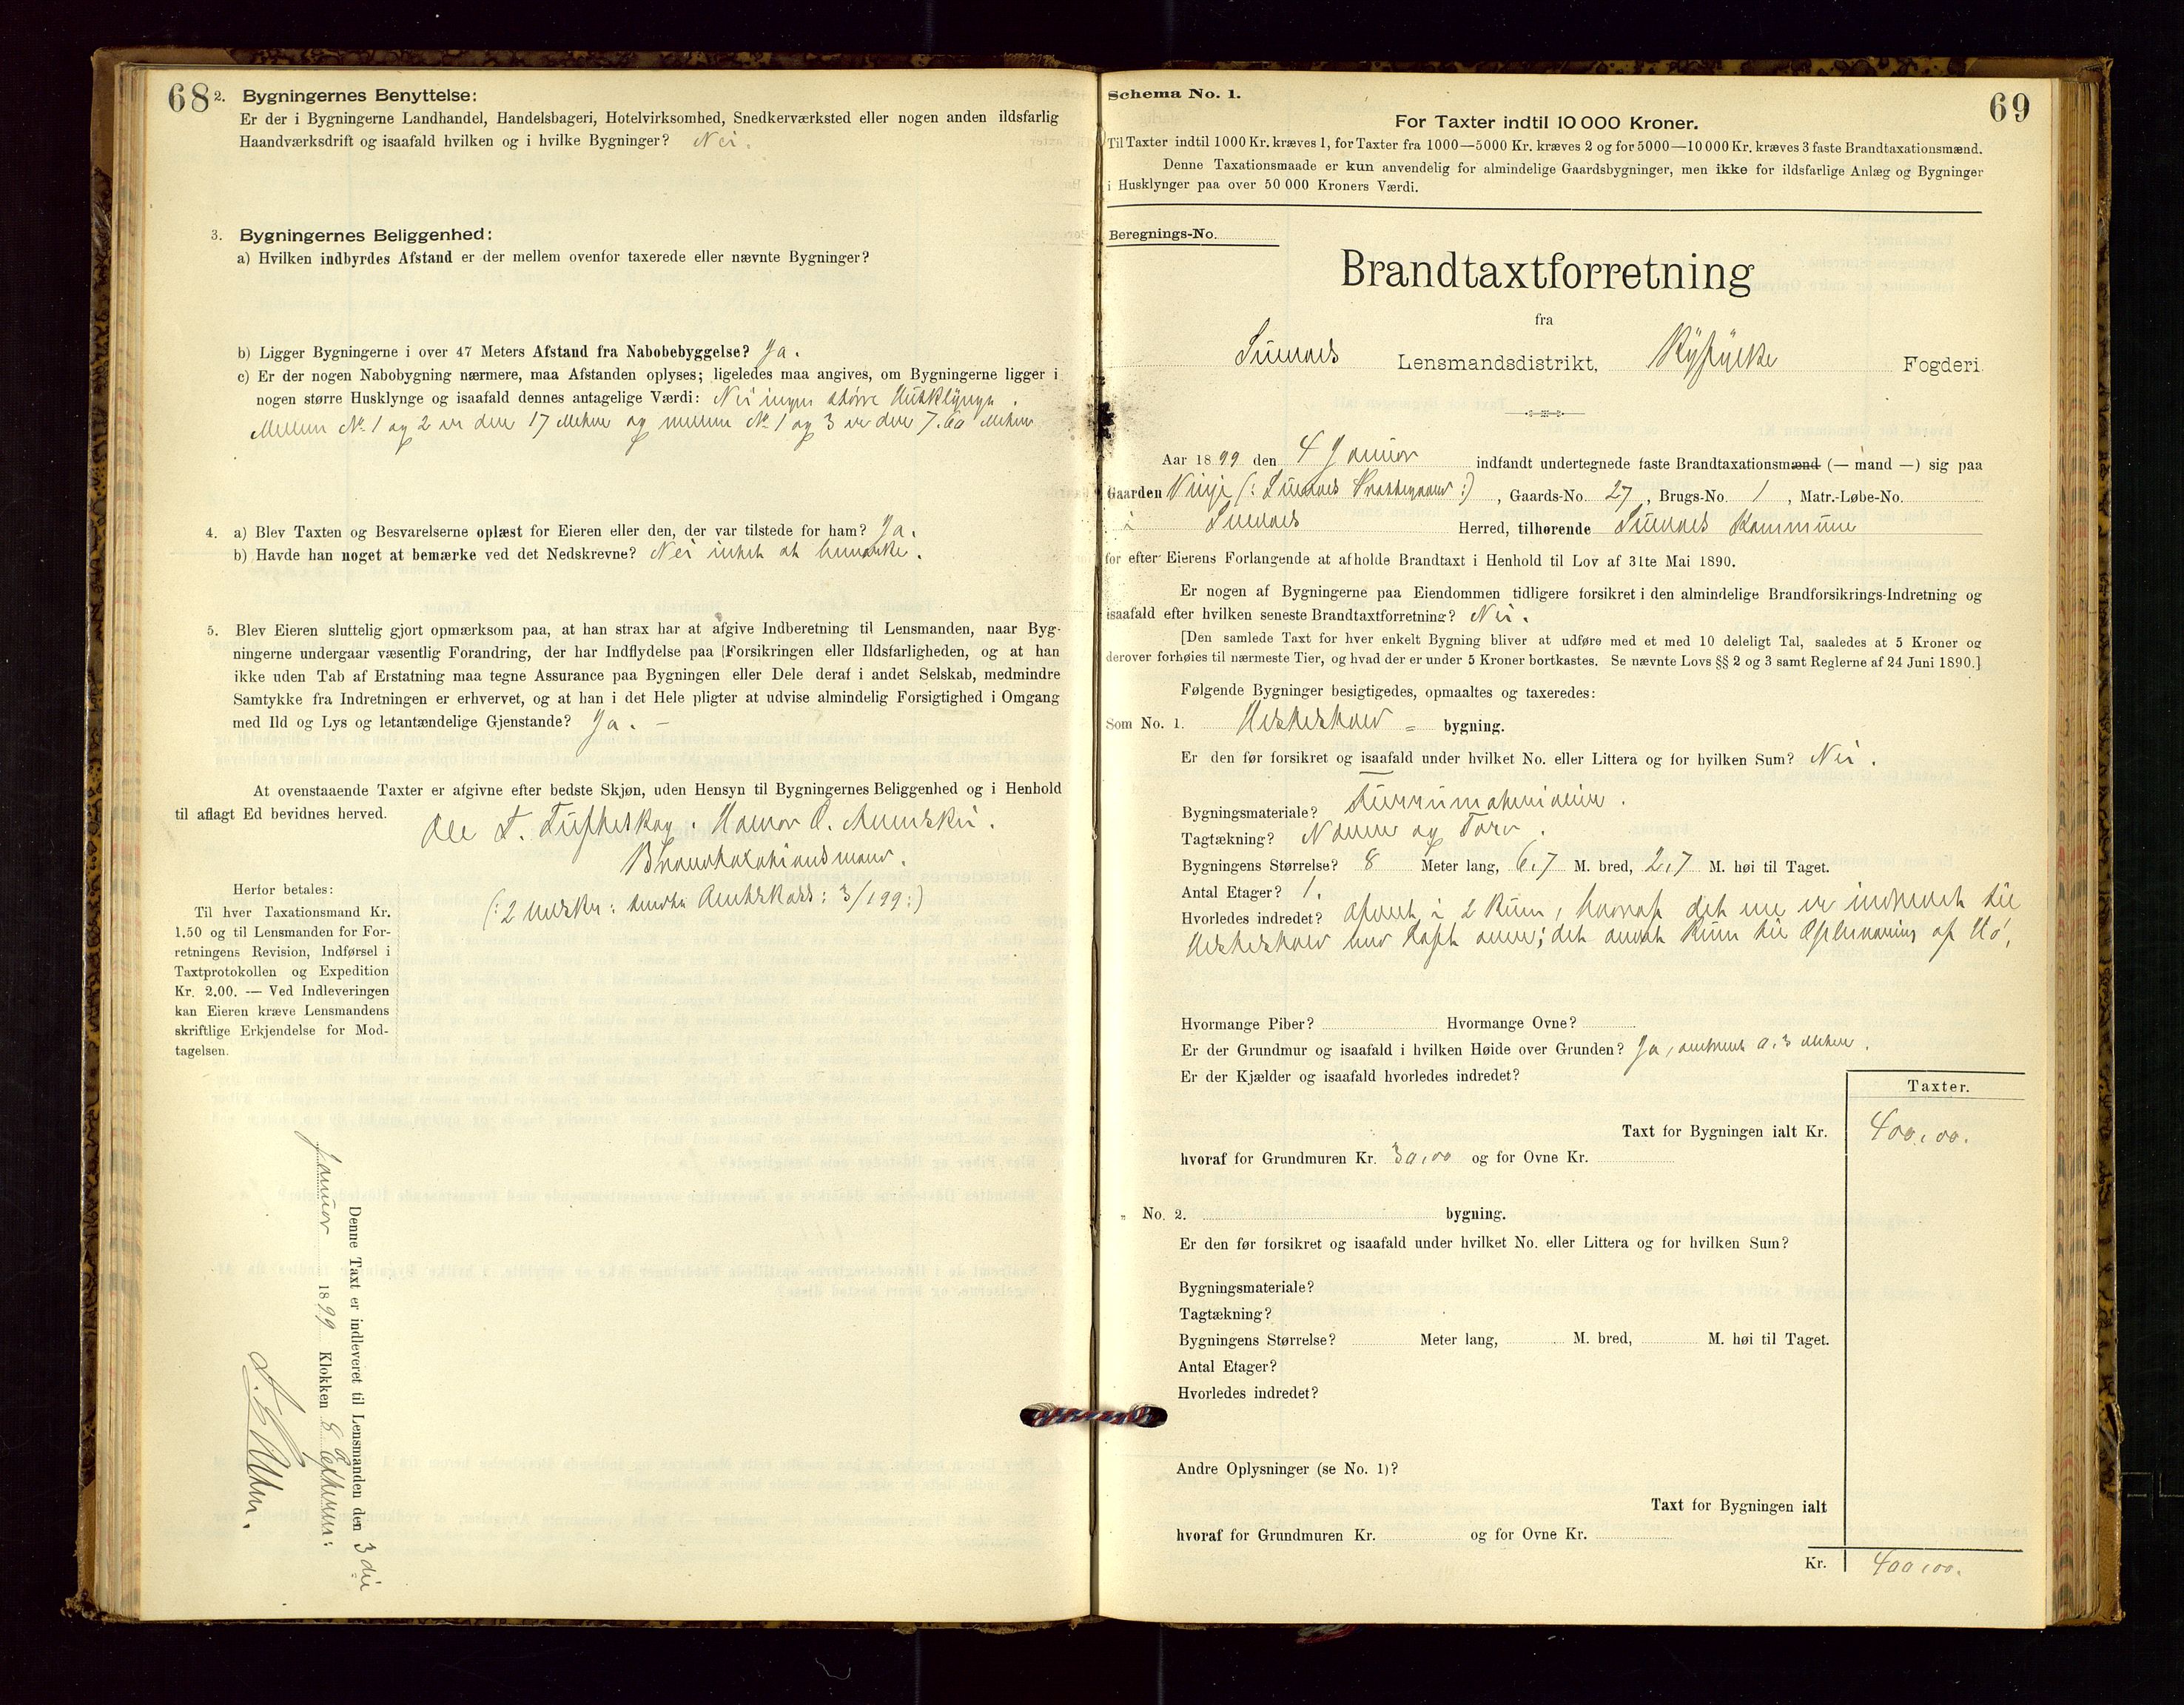 68
2. Bygningernes Benyttelse:
Er der i Bygningerne Landhandel, Handelsbageri, Hotelvirksomhed, Snedkerværksted eller nogen anden ildsfarlig
Haandværksdrift og isaafald hvilken og i hvilke Bygninger? Nei.
3. Bygningernes Beliggenhed:
a) Hvilken indbyrdes Afstand er der mellem ovenfor taxerede eller nævnte Bygninger?
b) Ligger Bygningerne i over 47 Meters Afstand fra Nabobebyggelse? Ja.
c) Er der nogen Nabobygning nærmere, maa Afstanden oplyses; ligeledes maa angives, om Bygningerne ligger i
nogen større Husklynge og isaafald dennes antagelige Værdi: Nei ingen større Husklynge.
Mellem No 1 og 2 er der 17 Meter og mellem No 1 og 3 er der 7.60 Meter
4. a) Blev Taxten og Besvarelserne oplæst for Eieren eller den, der var tilstede for ham? Ja.
b) Havde han noget at bemærke ved det Nedskrevne? Nei intet at bemærke.
5. Blev Eieren sluttelig gjort opmærksom paa, at han strax har at afgive Indberetning til Lensmanden, naar Byg-
ningerne undergaar væsentlig Forandring, der har Indflydelse paa (Forsikringen eller Ildsfarligheden, og at han
ikke uden Tab af Erstatning maa tegne Assurance paa Bygningen eller Dele deraf i andet Selskab, medmindre
Samtykke fra Indretningen er erhvervet, og at han i det Hele pligter at udvise almindelig Forsigtighed i Omgang
med Ild og Lys og letantændelige Gjenstande? Ja. –
At ovenstaaende Taxter er afgivne efter bedste Skjøn, uden Hensyn til Bygningernes Beliggenhed og i Henhold
til aflagt Ed bevidnes herved.
Ole T. Tuftheskog. Halvor O.
Brandtaxationsmænd.
Herfor betales:
Til hver Taxationsmand Kr.
1.50 og til Lensmanden for For-
retningens Revision, Indførsel i
Taxtprotokollen og Expedition
Kr. 2.00. — Ved Indleveringen
kan Eieren kræve Lensmandens
skriftlige Erkjendelse for Mod-
tagelsen.
(: 2 Udskr: sendte Amtskass: 3/1 99 :)
Denne Taxt er indleveret til Lensmanden den 3die
Januar 1899 Klokken 8 Efterm:
69
Schema No. 1.
For Taxter indtil 10 000 Kroner.
Til Taxter indtil 1000 Kr. kræves 1, for Taxter fra 1000—5000 Kr. kræves 2 og for 5000—10 000 Kr. kræves 3 faste Brandtaxationsmænd.
Denne Taxationsmaade er kun anvendelig for almindelige Gaardsbygninger, men ikke for ildsfarlige Anlæg og Bygninger
i Husklynger paa over 50 000 Kroners Værdi.
Beregnings-No.
Brandtaxtforretning
fra
Lensmandsdistrikt, Ryfylke Fogderi
Aar 1899 den 4 Januar indfandt undertegnede faste Brandtaxationsmænd (— mand —) sig paa
Gaarden , Gaards-No. 27, Brugs-No. 1, Matr.-Løbe-No.
i Herred, tilhørende Kommune
for efter Eierens Forlangende at afholde Brandtaxt i Henhold til Lov af 31te Mai 1890.
Er nogen af Bygningerne paa Eiendommen tidligere forsikret i den almindelige Brandforsikrings-Indretning og
isaafald efter hvilken seneste Brandtaxtforretning? Nei.
[Den samlede Taxt for hver enkelt Bygning bliver at udføre med et med 10 deleligt Tal, saaledes at 5 Kroner og
derover forhøies til nærmeste Tier, og hvad der er under 5 Kroner bortkastes. Se nævnte Lovs §§ 2 og 3 samt Reglerne af 24 Juni 1890.]
Følgende Bygninger besigtigedes, opmaaltes og taxeredes:
Som No. 1. bygning.
Er den før forsikret og isaafald under hvilket No. eller Littera og for hvilken Sum? Nei.
Bygningsmateriale?
Tagtækning? Næver og Torv.
Bygningens Størrelse? 8 Meter lang, 6,7 M. bred, 2,7 M. høi til Taget.
Antal Etager? 1.
Hvorledes indredet? afdelt i 2 Rum, hvoraf det ene er indredet til
det andet Rum til Opbevaring af Hø,
Hvormange Piber? Hvormange Ovne?
Er der Grundmur og isaafald i hvilken Høide over Grunden? Ja, omtrent 0.3 Meter.
Er der Kjælder og isaafald hvorledes indredet?
Taxter.
Taxt for Bygningen ialt Kr. 400,00.
hvoraf for Grundmuren Kr. 30,00 og for Ovne Kr.
„ No. 2. bygning.
Er den før forsikret og isaafald under hvilket No. eller Littera og for hvilken Sum?
Bygningsmateriale?
Tagtækning?
Bygningens Størrelse? Meter lang, M. bred, M. høi til Taget.
Antal Etager?
Hvorledes indredet?
Andre Oplysninger (se No. 1)?
Taxt for Bygningen ialt
hvoraf for Grundmuren Kr. og for Ovne Kr.
Kr. 400,00.